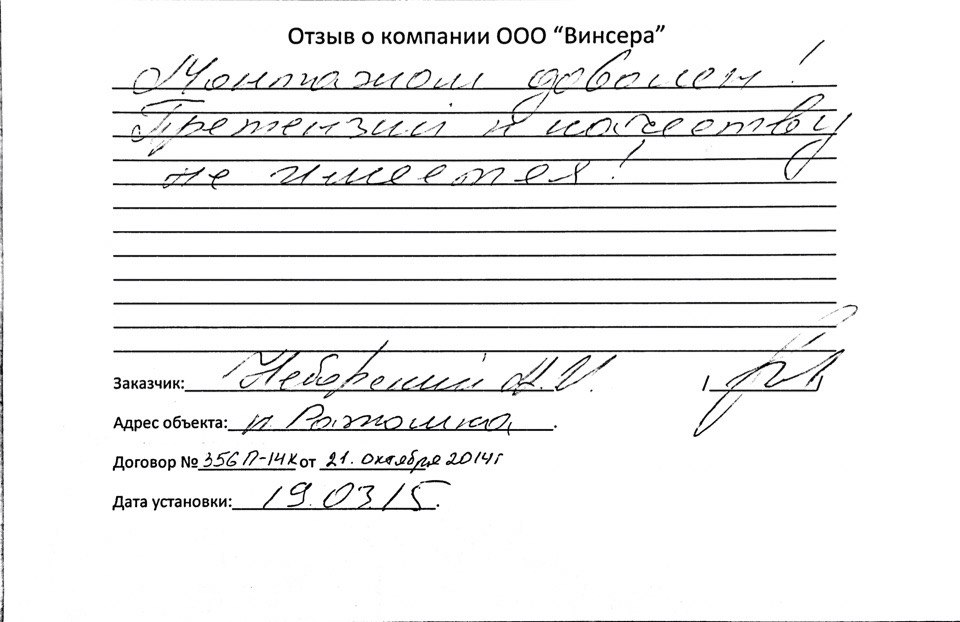 Отзыв о компании ООО “Винсера”
Монтажом доволен!
Претензий к качеству
не имеется!
Заказчик: Неборский Н.И.
Адрес объекта: п.
Договор № 356П-14К от 21. октября 2014г
Дата установки: 19.03.15.